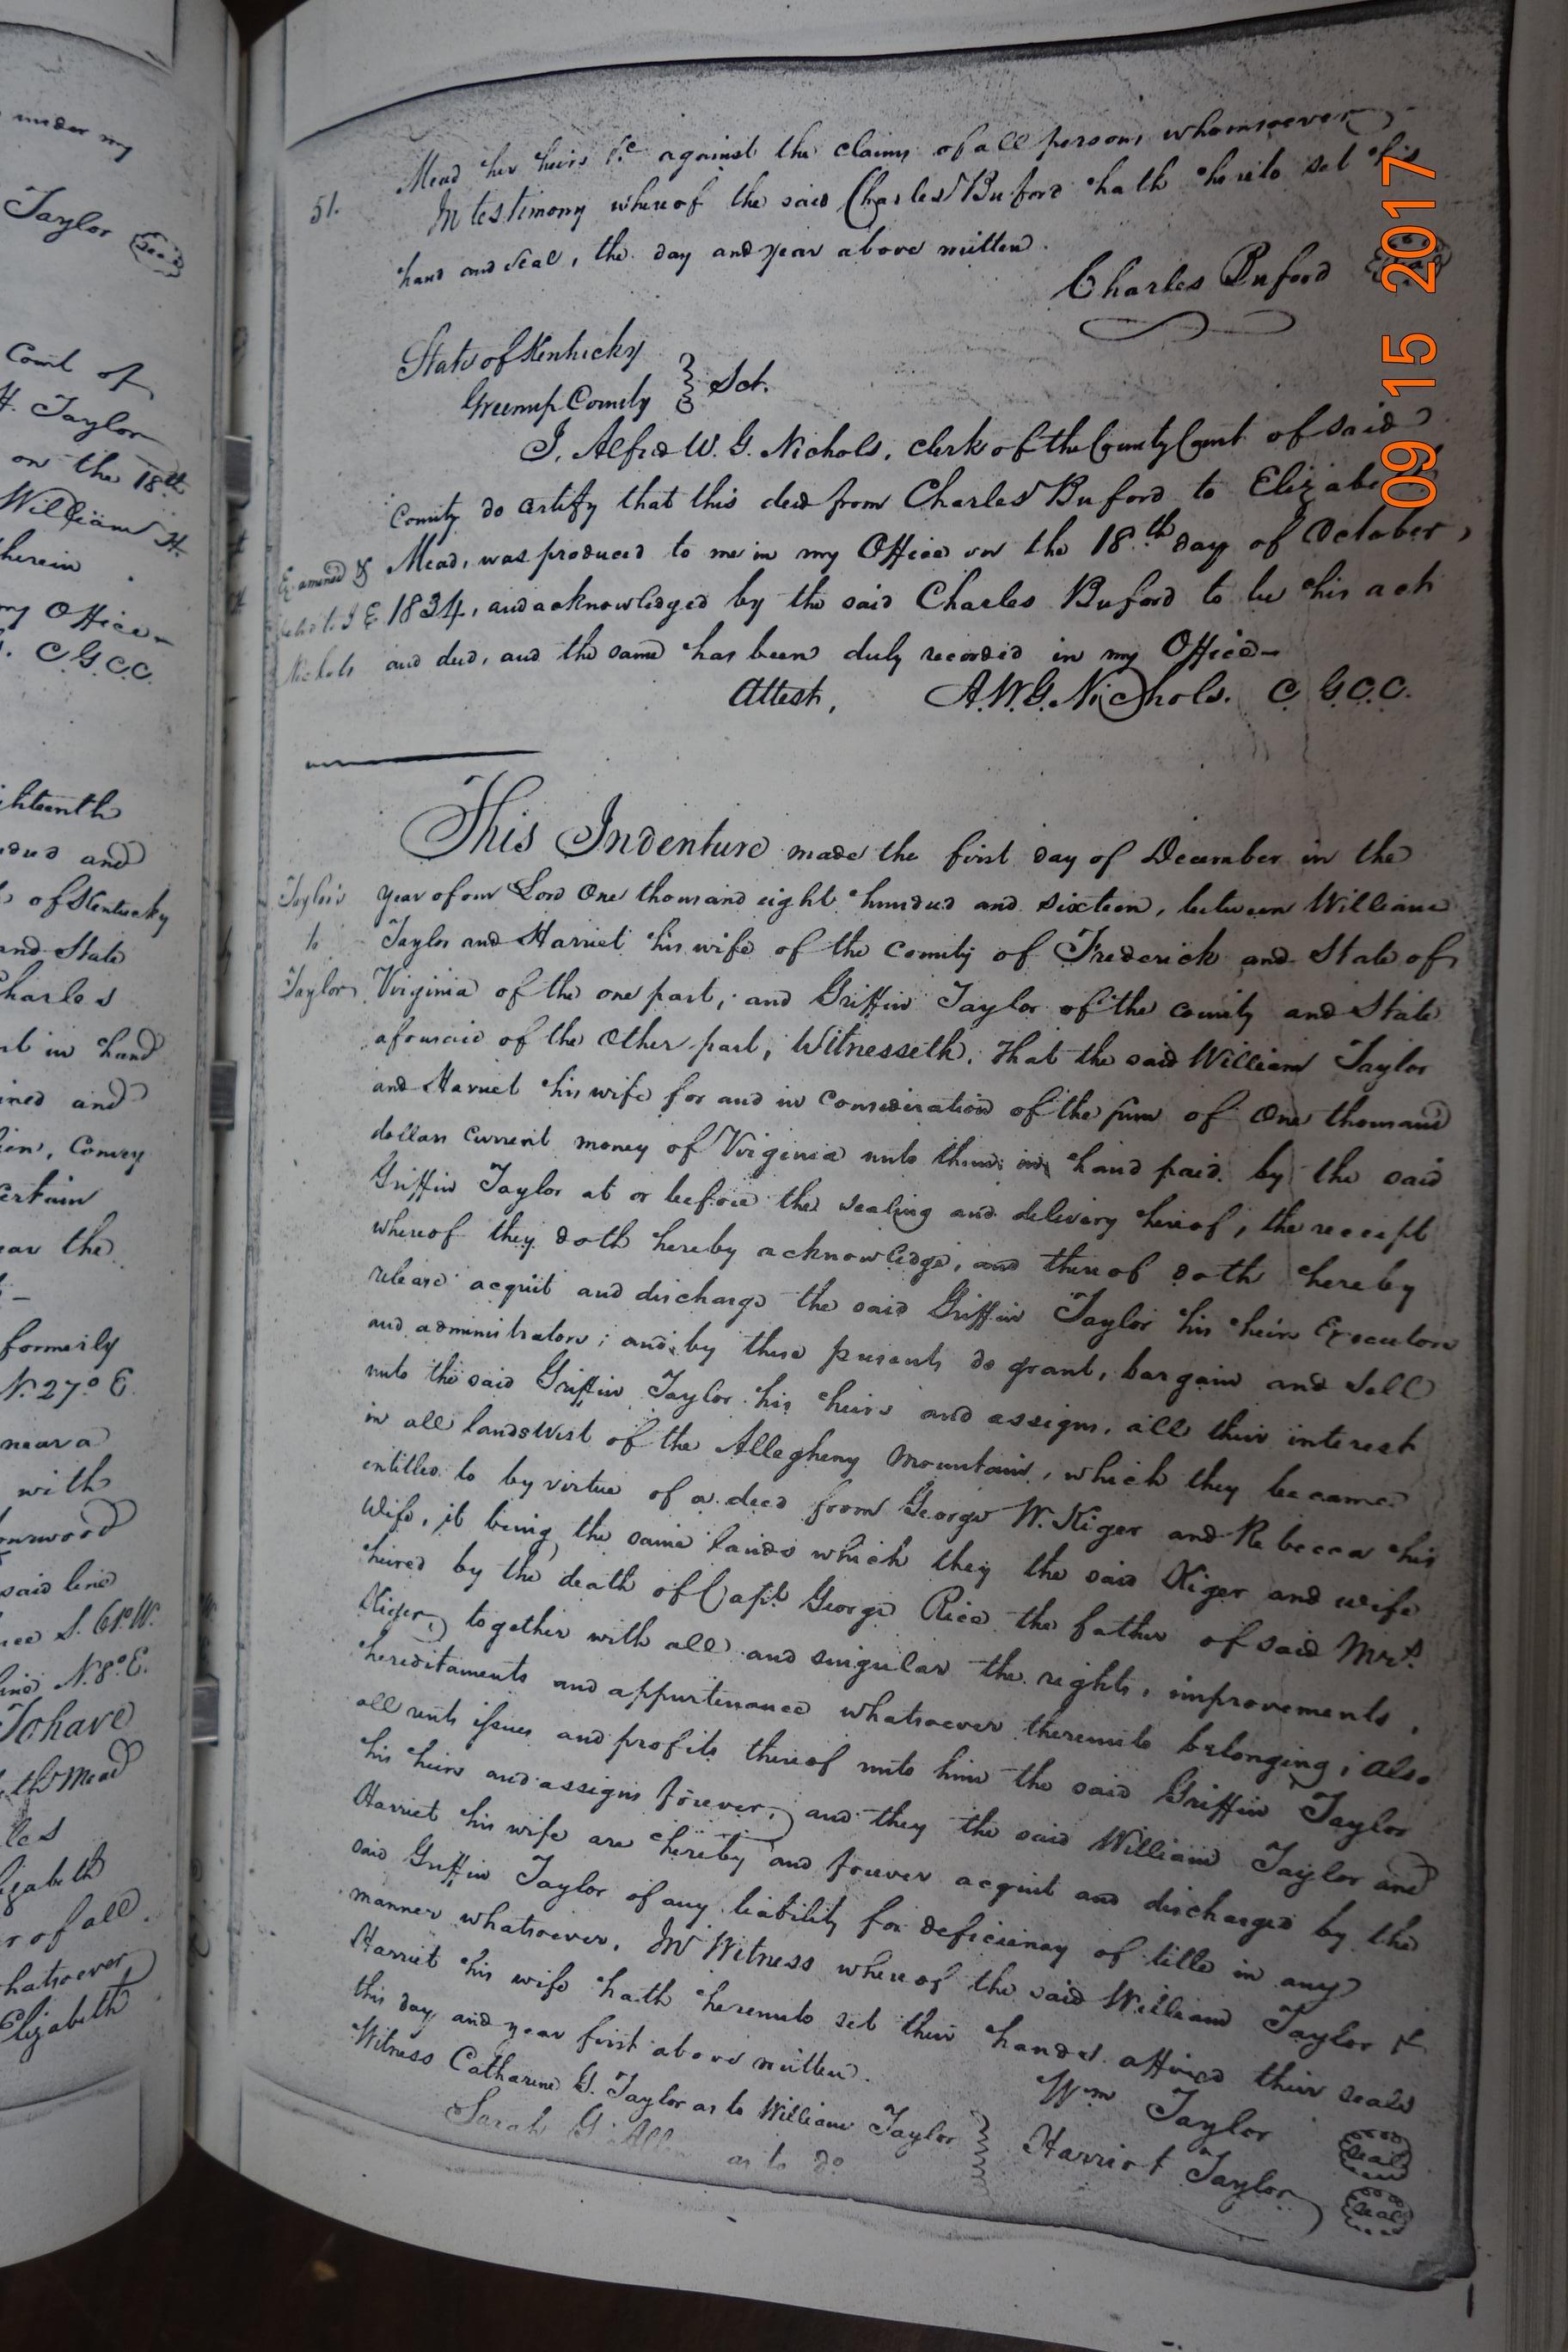 under my
Taylor (seal)
Court of
H. Taylor
on the 18th
William H.
herein
my Office
C.G.C.C.
ghteenth
and
of Kentucky
and State
Charles
in hand
ined and
Convey
certain
the
formerly
N. 27° E.
near a
with
said line
S. 61° W.
line N. 8° E.
To have
Mead
les
izabeth
r of all
hatsoever
Elizabeth
51.
Mead her heirs &c against the claims of all persons whomsoever
In testimony whereof the said Charles Buford hath hereto set his
hand and seal, the day and year above written.
Charles Buford (Seal)
State of Kentucky
Greenup County } Sct.
I, Alfred W. G. Nichols, clerk of the County Court of said
County do certify that this deed from Charles Buford to Elizabe
Mead, was produced to me in my Office on the 18th day of October,
1834, and acknowledged by the said Charles Buford to be his act
and deed, and the same has been duly recorded in my Office—
Attest, A.W.G. Nichols. C.G.C.C.
Examined &
J E
Nichols
This Indenture made the first day of December in the
year of our Lord One thousand eight hundred and sixteen, between William
Taylor and Harriet his wife of the county of Frederick and State of
Virginia of the one part; and Griffin Taylor of the county and State
aforesaid of the Other part, Witnesseth. That the said William Taylor
and Harriet his wife for and in consideration of the sum of One thousand
dollars current money of Virginia unto them in hand paid by the said
Griffin Taylor at or before the sealing and delivery hereof, the receipt
whereof they doth hereby acknowledge, and thereof doth hereby
release acquit and discharge the said Griffin Taylor his heirs Executors
and administrators; and by these presents do grant, bargain and sell
unto the said Griffin Taylor his heirs and assigns, all their interest
in all lands West of the Allegheny Mountain, which they became
entitled to by virtue of a deed from George W. Kiger and Rebecca his
Wife, it being the same lands which they the said Kiger and wife
heired by the death of Capt. George Rice the father of said Mrs.
Kiger, together with all and singular the rights, improvements,
hereditaments and appurtenance whatsoever thereunto belonging; also
all rents issues and profits thereof unto him the said Griffin Taylor
his heirs and assigns forever, and they the said William Taylor and
Harriet his wife are hereby and forever acquit and discharged by the
said Griffin Taylor of any liability for deficiency of title in any
manner whatsoever. In Witness whereof the said William Taylor &
Harriet his wife hath hereunto set their hands affixed their seals
this day and year first above written.
Witness Catharine G. Taylor as to William Taylor
Sarah G. as to do
Wm Taylor (Seal)
Harriot Taylor (Seal)
Taylor's
to
Taylor
09 15 2017